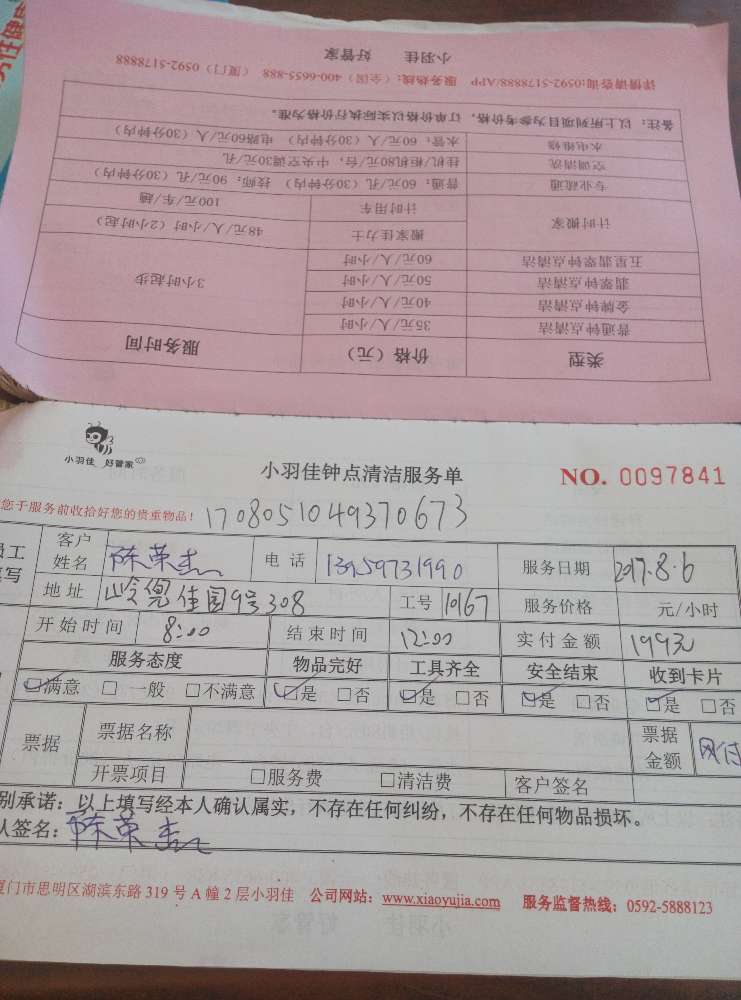 小羽佳 好管家
类型 价格（元） 服务时间
普通钟点清洁 35元/人/小时
金牌钟点清洁 40元/人/小时
翡翠钟点清洁 50元/人/小时
五星翡翠钟点清洁 60元/人/小时
3小时起步
计时搬家 搬家佳力士 48元/人/小时（2小时起）
计时用车 100元/车/趟
专业疏通 普通：60元/孔（30分钟内） 技师：90元/孔（30分钟内）
空调清洗 挂机/柜机80元/台，中央空调30元/孔
水电维修 水管：60元/人（30分钟内） 电路60元/人（30分钟内）
备注：以上所列项目为参考价格，订单价格以实际执行价格为准。
详情请咨询:0592-5178888/APP 服务热线：（全国）400-6655-888 （厦门）0592-5178888
小羽佳 好管家
小羽佳钟点清洁服务单
NO. 0097841
您于服务前收拾好您的贵重物品！
1708051049370673
员工填写
客户姓名 陈荣杰 电话 13959731990 服务日期 2017.8.6
地址 岭兜佳园9号308 工号 10167 服务价格 元/小时
开始时间 8:00 结束时间 12:00 实付金额 199元
服务态度 物品完好 工具齐全 安全结束 收到卡片
☑满意 □一般 □不满意 ☑是 □否 ☑是 □否 ☑是 □否 ☑是 □否
票据 票据名称 票据金额 网付
开票项目 □服务费 □清洁费 客户签名
别承诺：以上填写经本人确认属实，不存在任何纠纷，不存在任何物品损坏。
人签名：陈荣杰
厦门市思明区湖滨东路319号A幢2层小羽佳 公司网站：www.xiaoyujia.com 服务监督热线：0592-5888123